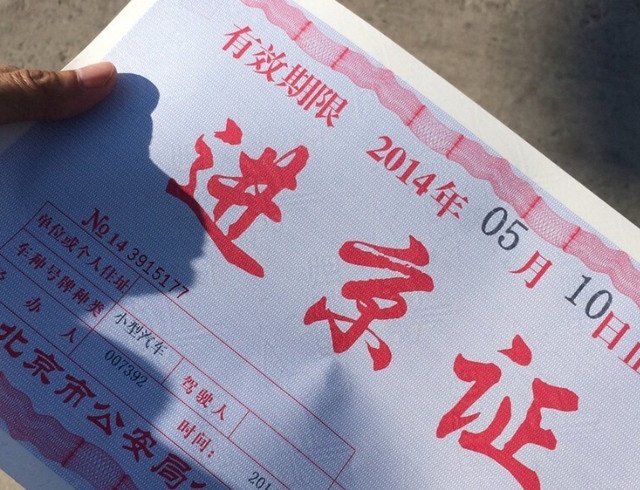 有效期限 2014年 05月 10日
进京证
No14 3915177
单位或个人住址
车种号牌种类 小型汽车
办人 007392 驾驶人
时间: 201
北京市公安局